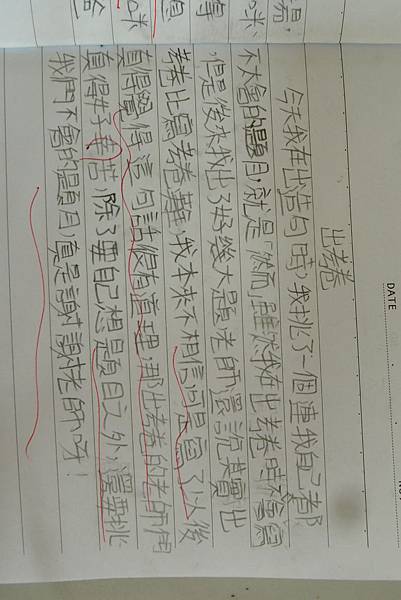 出考卷
今天我在出造句時，我挑了一個連我自己都
不太會的題目，就是「然而」雖然我在出考卷時不會寫
，但是後來我出了好幾大題，老師還說其實出
考卷比寫考卷難，我本來不相信，可是寫了以後
真得覺得這句話很有道理，那出考卷的老師們
真得好辛苦，除了要自己想題目之外，還要挑
我們不會的題目，真是謝謝老師呀！
DATE